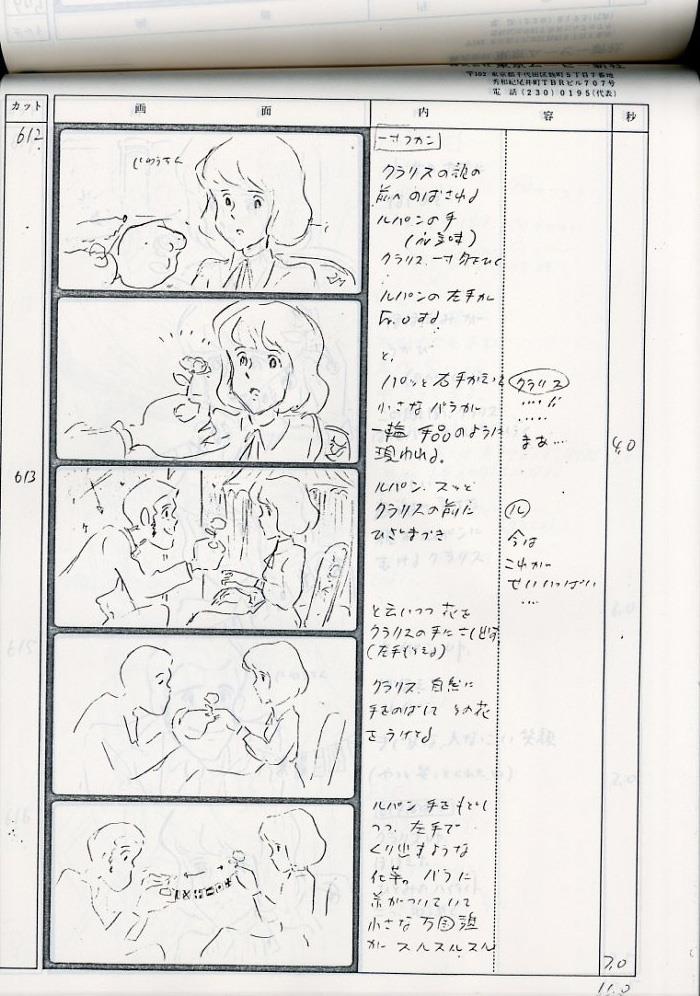 〒102 東京都千代田区麹町5丁目7番地
秀和紀尾井町TBRビル707号
電話(230)0195(代表)
カット
画面
内容
秒
612
じゅうさん
一寸フカン
クラリスの
前へのばされる
ルパンの手
クラリス、一寸
ルパンの左手が
と、
パッと右手が
小さなバラが
一輪 手品のように
現われる。
クラリス
まぁ…
4.0
613
ルパン、スッと
クラリスの前に
ひざまづき
ル
今は
これが
せいいっぱい
…
と云いつつ 花を
クラリスの手にさし出す
クラリス、自然に
手をのばして その花
をうけとる
ルパン 手をもどし
つつ、左手で
くり出すような
仕草。バラに
糸がついていて
小さな万国旗
が スルスルスル
7.0
11.0